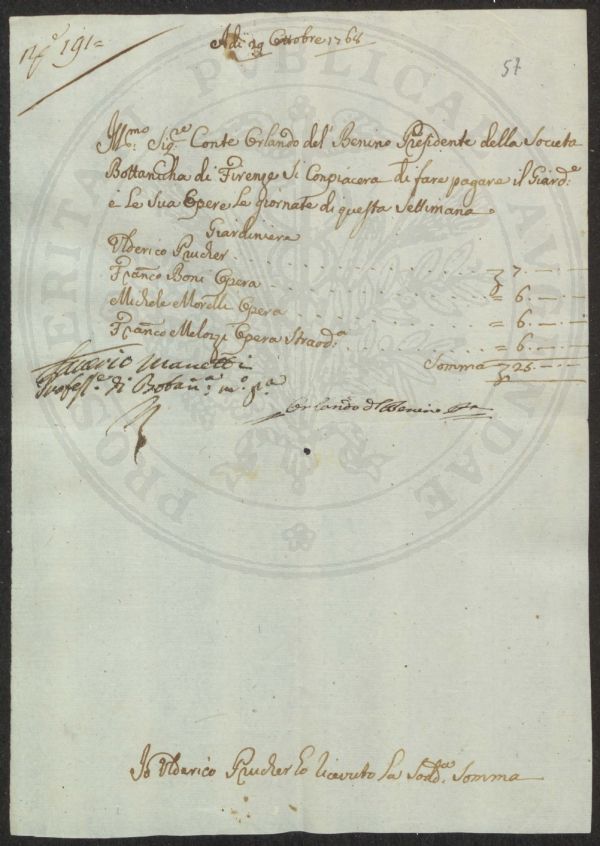 n.º 191=
Adi 29 Ottobre 1768
57
Ill.mo Sig.re Conte Orlando del Benino Presidente della Societa
Bottanicha di Firenze Si Conpiacera di fare pagare il Giard.e
e Le Sua Opere Le giornate di questa Settimana
Giardiniera
Ulderico Prucher 7.—.—
Franco Boni Opera = 6.—.—
Michele Morelli Opera = 6.—.—
Franco Meloizi Opera Straord.a = 6.—.—
Somma 25.—.—
Saverio Manetti
Profess.e di Botan.a m.o p.a
Orlando del Benino
Io Ulderico Prucher ho ricevuto La Somma
PROSPERITATI PUBLICAE AUGENDAE